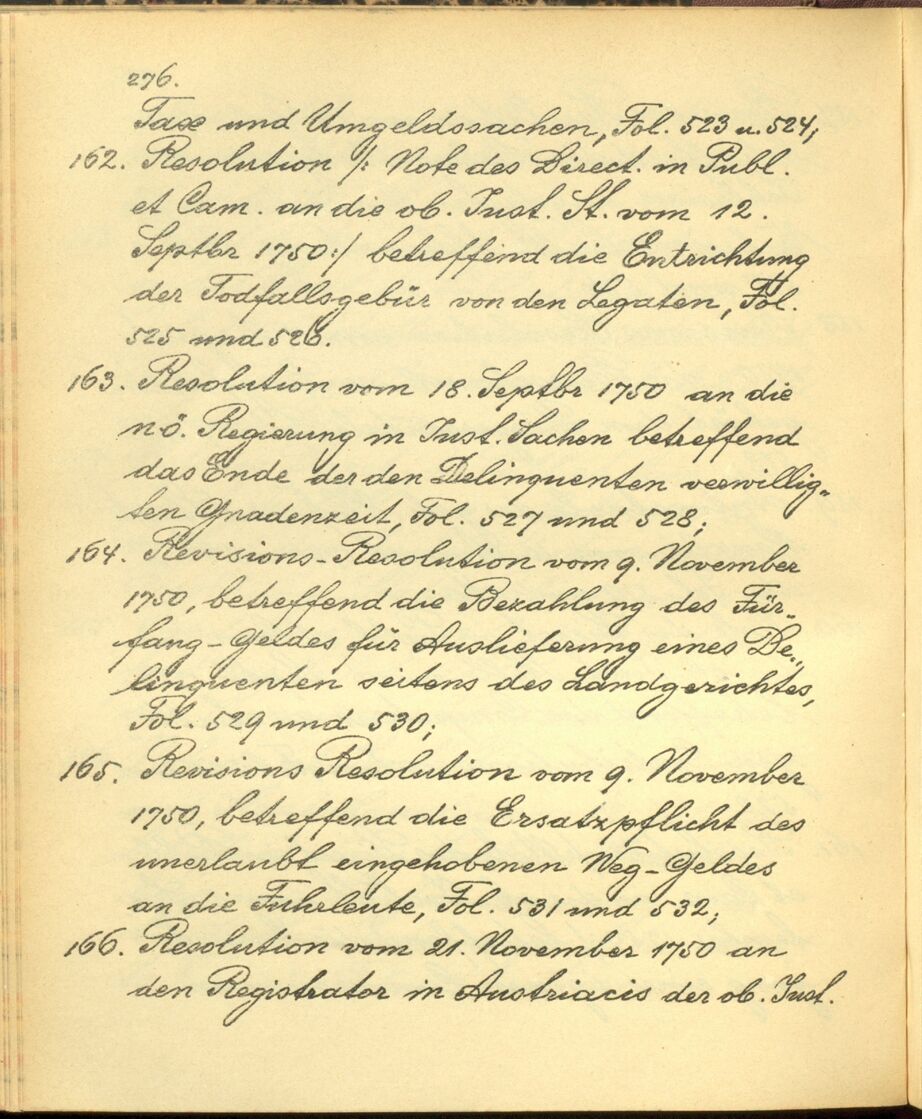 276.
Taxe und Umgeldssachen, Fol. 523 u. 524;
162. Resolution /: Note des Direct. in Publ.
et Cam. an die ob. Just. St. vom 12.
Septbr 1750:/ betreffend die Entrichtung
der Todfallsgebür von den Legaten, Fol.
525 und 526.
163. Resolution vom 18. Septbr 1750 an die
n.ö. Regierung in Just. Sachen betreffend
das Ende der den Delinquenten verwillig„
ten Gnadenzeit, Fol. 527 und 528;
164. Revisions-Resolution vom 9. November
1750, betreffend die Bezahlung des Für„
fang-Geldes für Auslieferung eines De„
linquenten seitens des Landgerichtes,
Fol. 529 und 530;
165. Revisions Resolution vom 9. November
1750, betreffend die Ersatzpflicht des
unerlaubt eingehobenen Weg-Geldes
an die Fuhrleute, Fol. 531 und 532;
166. Resolution vom 21. November 1750 an
den Registrator in Austriacis der ob. Just.